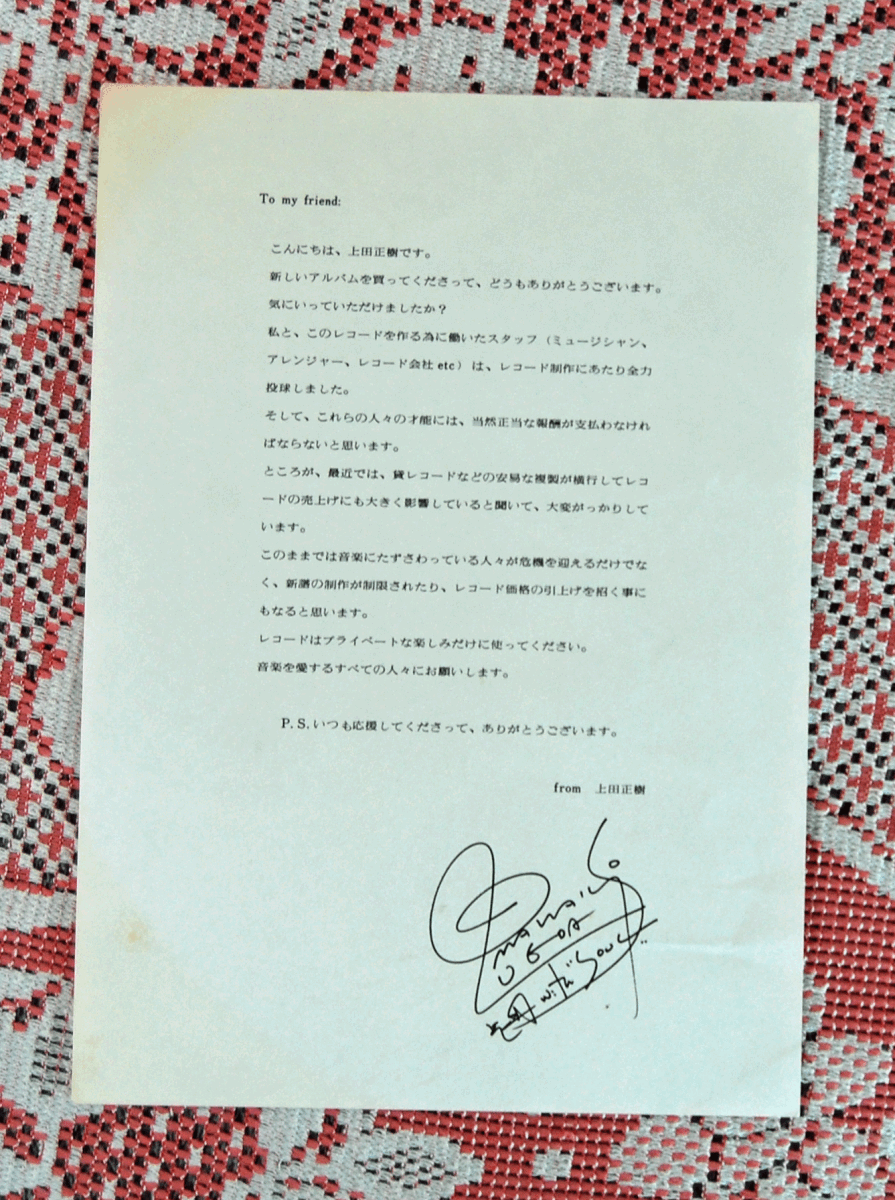 To my friend:
こんにちは、上田正樹です。
新しいアルバムを買ってくださって、どうもありがとうございます。
気にいっていただけましたか？
私と、このレコードを作る為に働いたスタッフ（ミュージシャン、
アレンジャー、レコード会社etc）は、レコード制作にあたり全力
投球しました。
そして、これらの人々の才能には、当然正当な報酬が支払わなけれ
ばならないと思います。
ところが、最近では、貸レコードなどの安易な複製が横行してレコ
ードの売上げにも大きく影響していると聞いて、大変がっかりして
います。
このままでは音楽にたずさわっている人々が危機を迎えるだけでな
く、新譜の制作が制限されたり、レコード価格の引上げを招く事に
もなると思います。
レコードはプライベートな楽しみだけに使ってください。
音楽を愛するすべての人々にお願いします。
P.S.いつも応援してくださって、ありがとうございます。
from 上田正樹
UEDA
with "Soul"